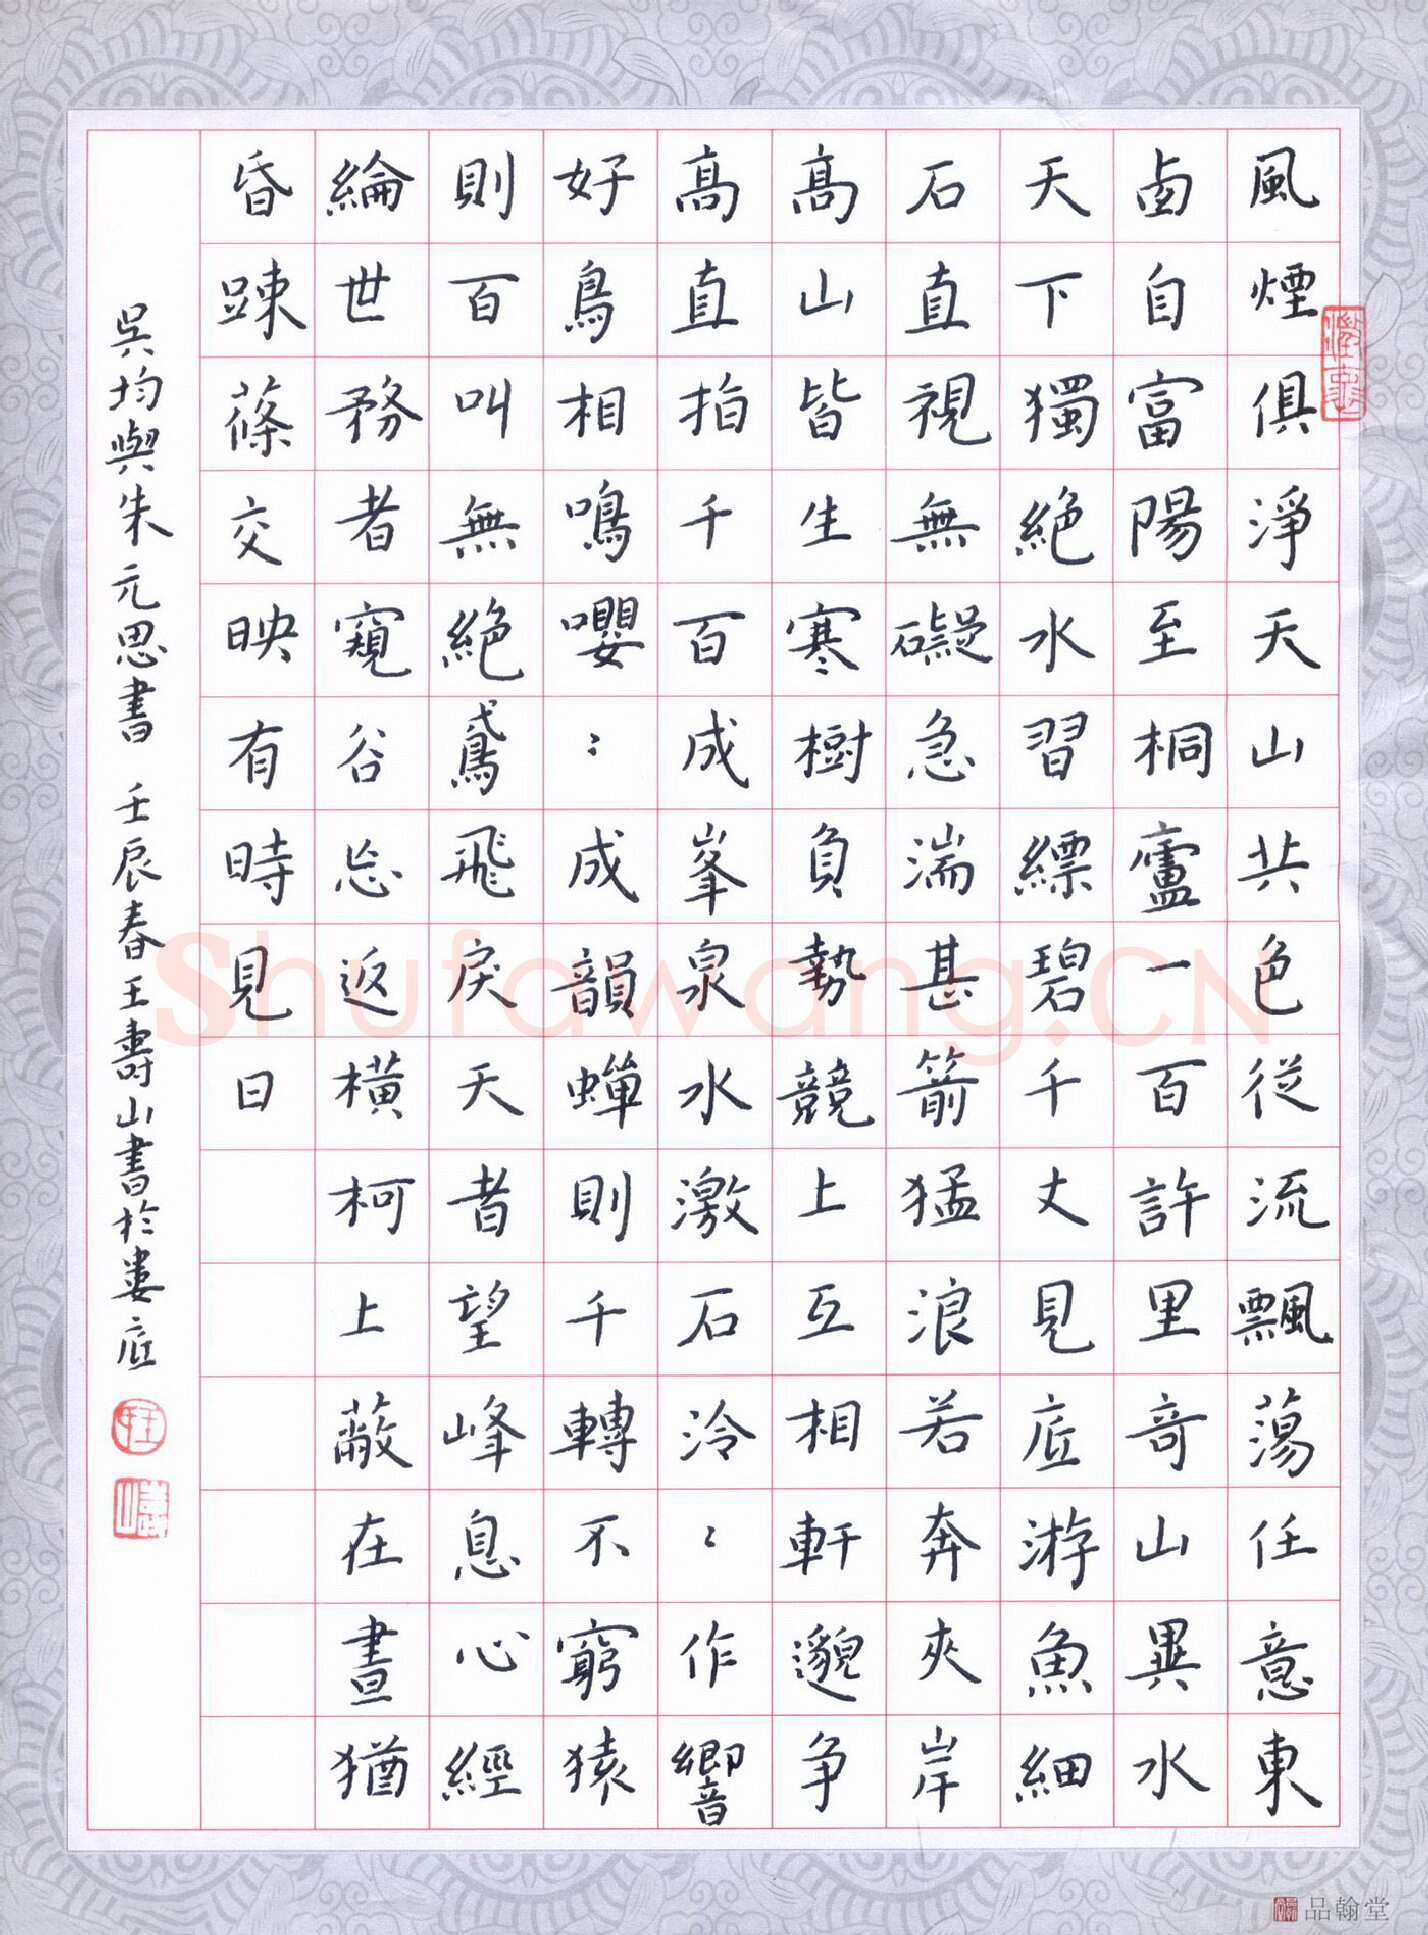 風煙俱淨天山共色從流飄蕩任意東
卥自富陽至桐廬一百許里奇山異水
天下獨絕水習縹碧千丈見底游魚細
石直視無礙急湍甚箭猛浪若奔夾岸
高山皆生寒樹負勢競上互相軒邈爭
高直指千百成峯泉水激石泠〻作響
好鳥相鳴嚶〻成韻蟬則千轉不窮猿
則百叫無絕鳶飛戾天者望峰息心經
綸世務者窺谷忘返橫柯上蔽在晝猶
昏踈蓧交映有時見日
吳均與朱元思書 壬辰春王壽山書於婁底
Shufawang.CN
品翰堂